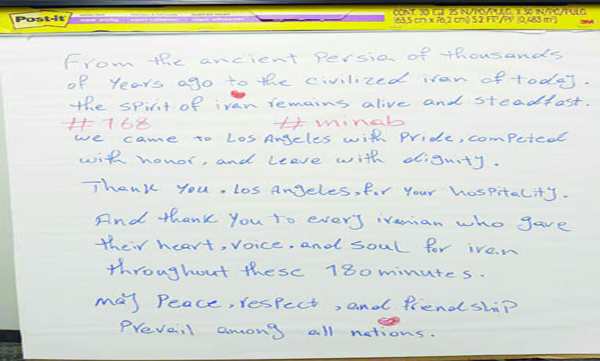 Post-it
CONT. 30 25 IN/PO/PULG. X 30 IN/PO/PULG.
(63,5 cm x 76,2 cm) 5.2 FT²/PI² (0,483 m²)
3M
From the ancient Persia of thousands
of years ago to the civilized iran of today.
the spirit of iran remains alive and steadfast.
#168 #minab
we came to Los Angeles with Pride, competed
with honor, and Leave with dignity.
Thank you . Los Angeles, for your hospitality.
And thank you to every iranian who gave
their heart, voice, and soul for iran
throughout these 180 minutes.
may Peace, respect, and friendship
Prevail among all nations.